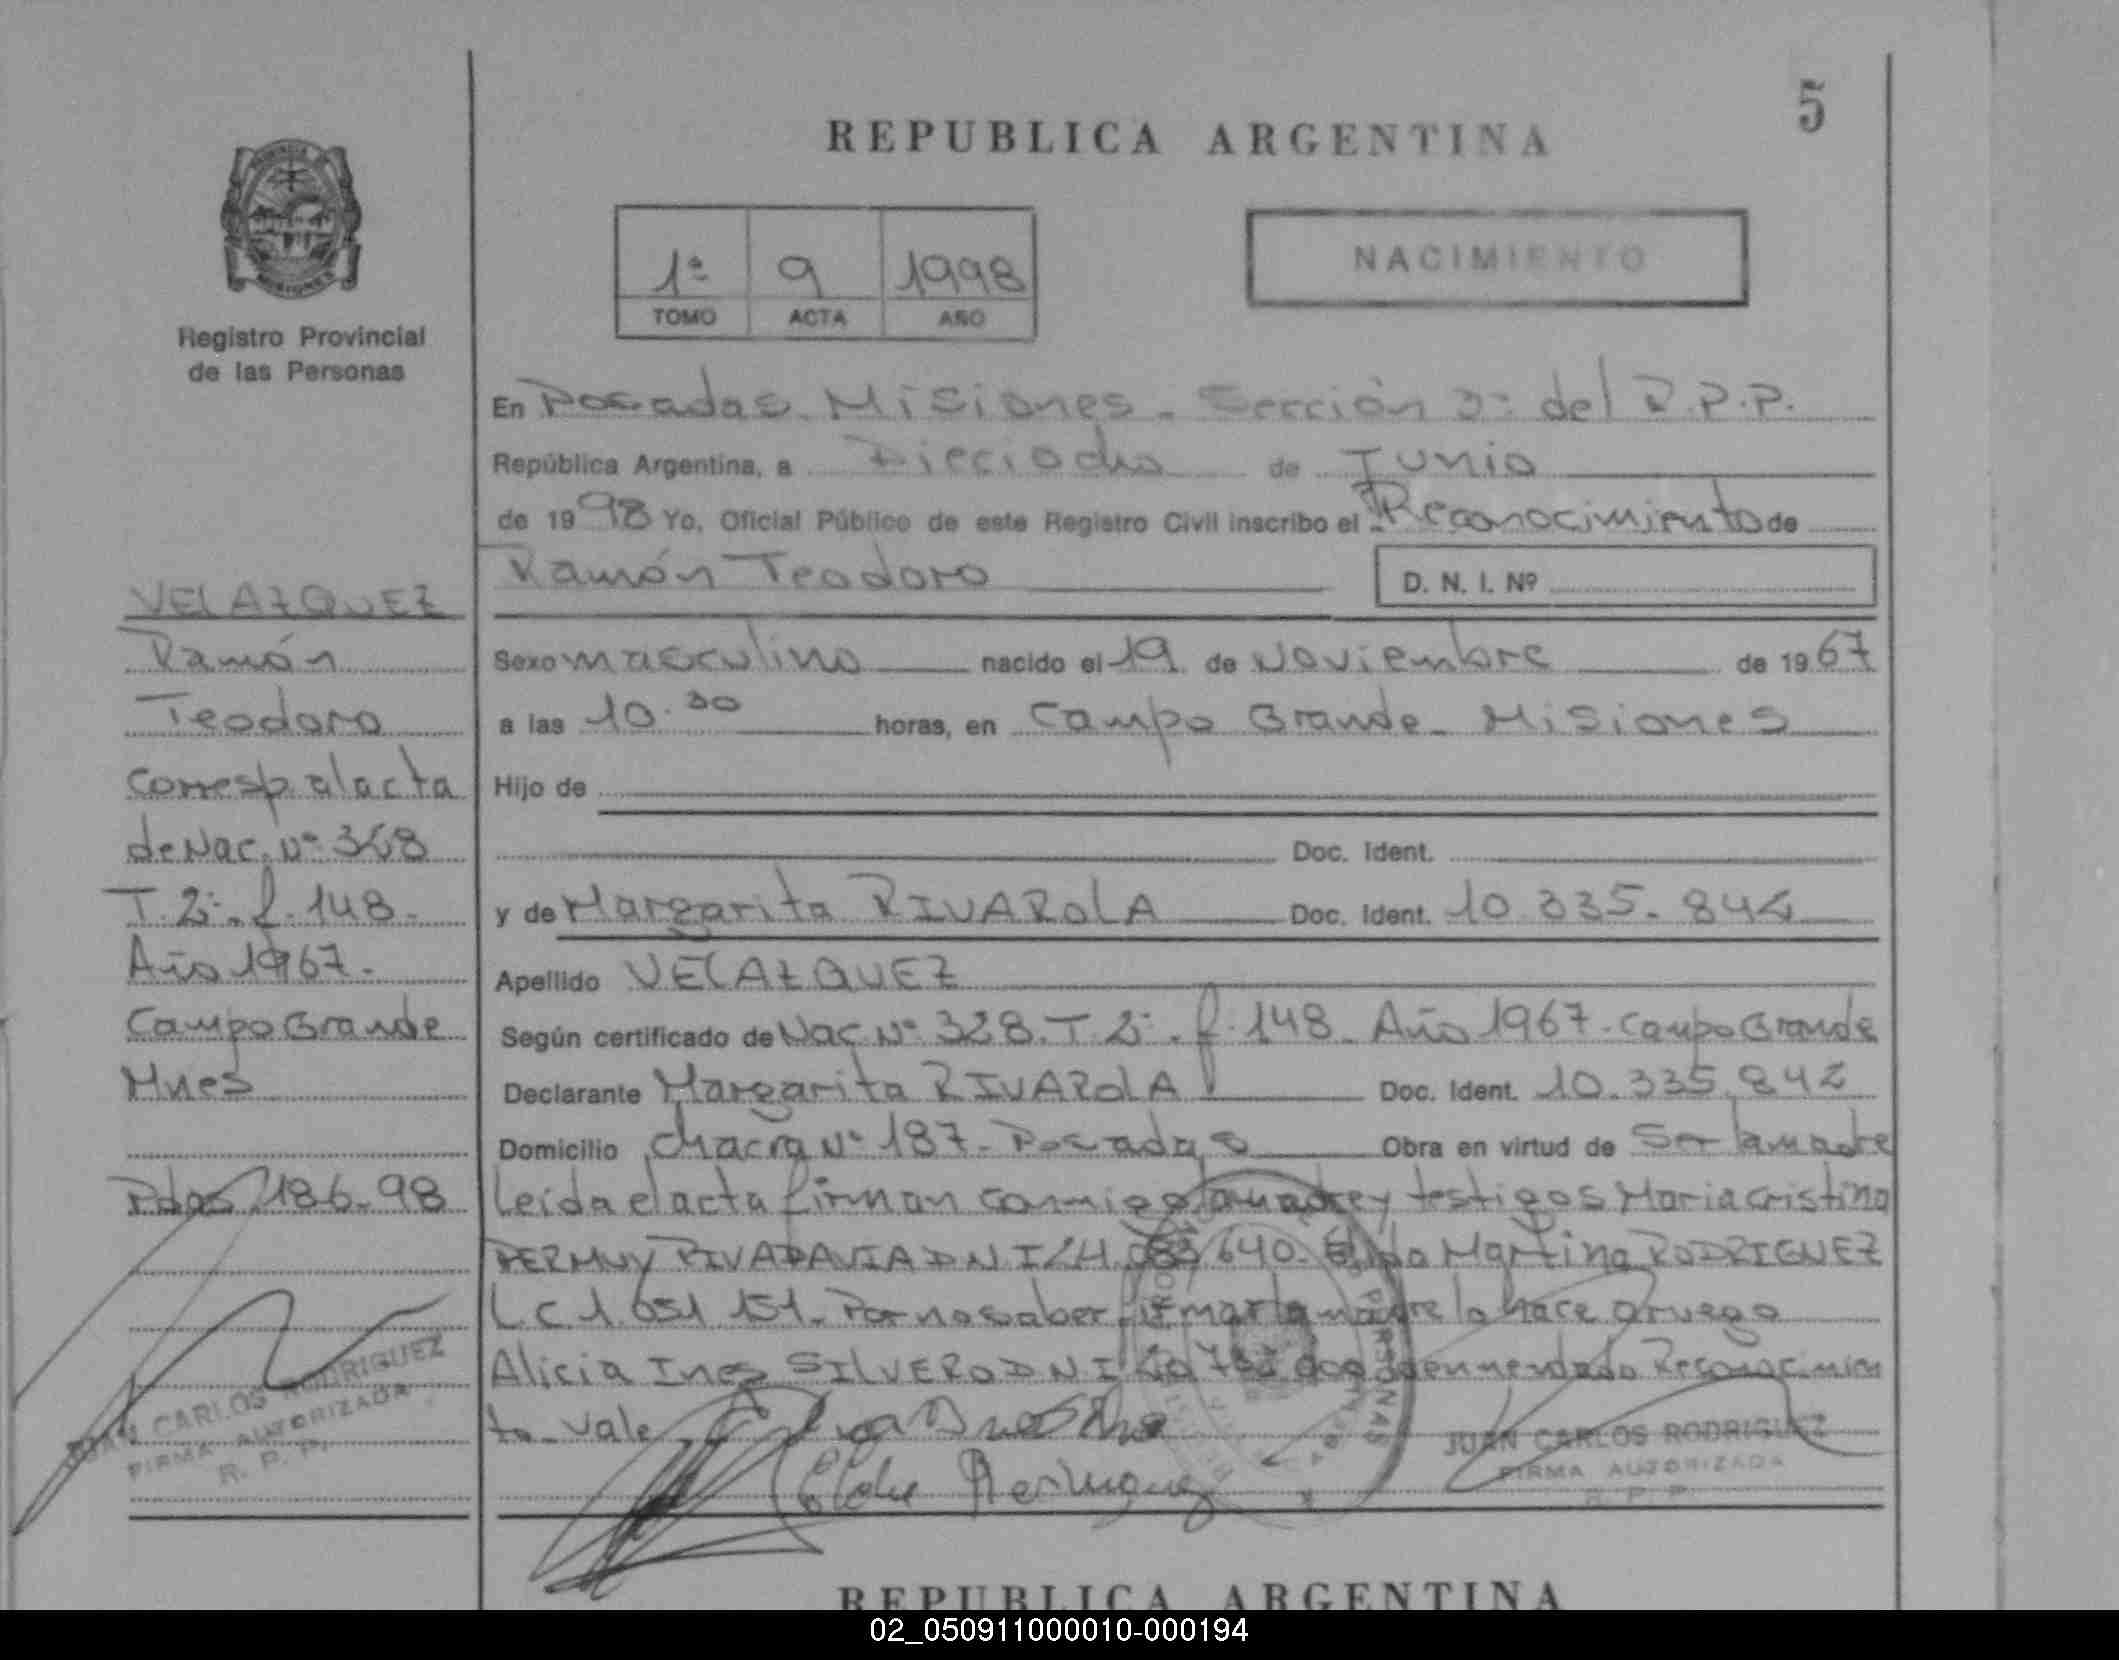 5
REPUBLICA ARGENTINA
1ª 9 1998
TOMO ACTA AÑO
NACIMIENTO
Registro Provincial
de las Personas
En Posadas Misiones - Sección 3ª del R.P.P.
República Argentina, a Dieciocho de Junio
de 1998 Yo, Oficial Público de este Registro Civil inscribo el Reconocimiento de
Ramón Teodoro D. N. I. Nº
Sexo masculino nacido el 19 de Noviembre de 1967
a las 10.30 horas, en Campo Grande - Misiones
Hijo de
Doc. Ident.
y de Margarita RIVAROLA Doc. Ident. 10.335.842
Apellido VELAZQUEZ
Según certificado de Nac. Nº 328. T. 2º. f. 148. Año 1967. Campo Grande
Declarante Margarita RIVAROLA Doc. Ident. 10.335.842
Domicilio Chacra Nº 187 - Posadas Obra en virtud de Ser la madre
Leída el acta firman conmigo la madre y testigos Maria Cristina
PERMUY RIVADAVIA D N I 24.083.640. Martina RODRIGUEZ
L.C 1.651.151. Por no saber firmar la madre lo hace a ruego
Alicia Ines SILVERO D N I enmendado Reconocimien
to - Vale
JUAN CARLOS RODRIGUEZ
FIRMA AUTORIZADA
R. P. P.
VELAZQUEZ
Ramón
Teodoro
Corresp. al acta
de Nac. Nº 328
T. 2º. f. 148.
Año 1967.
Campo Grande
Mnes
Pdas. 18 6 - 98
JUAN CARLOS RODRIGUEZ
FIRMA AUTORIZADA
R. P. P.
REPUBLICA ARGENTINA
02_050911000010-000194